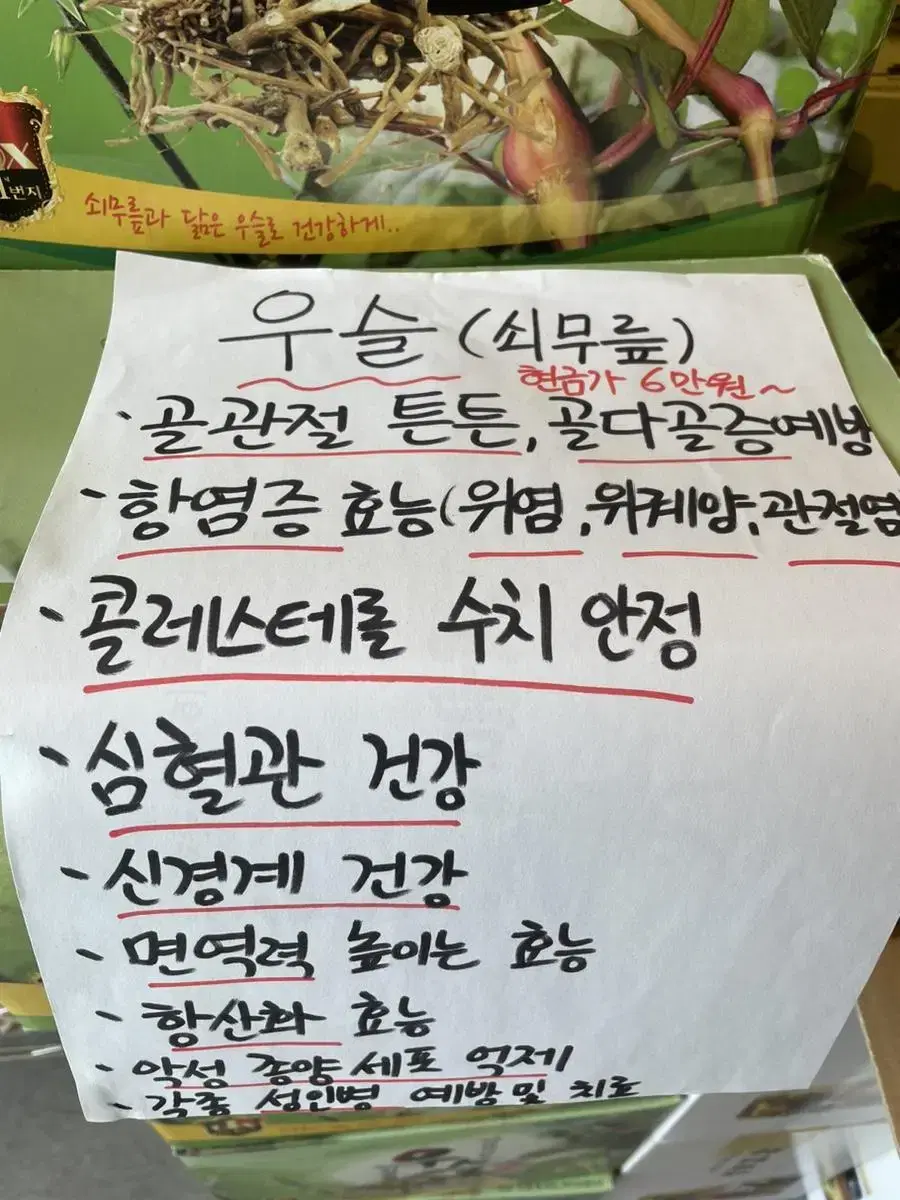 번지
쇠무릎과 닮은 우슬로 건강하게..
우슬 (쇠무릎)
현금가 6만원~
· 골관절 튼튼, 골다골증예방
· 항염증 효능(위염, 위궤양, 관절염
· 콜레스테롤 수치 안정
· 심혈관 건강
· 신경계 건강
· 면역력 높이는 효능
· 항산화 효능
· 악성 종양세포 억제
· 각종 성인병 예방 및 치료